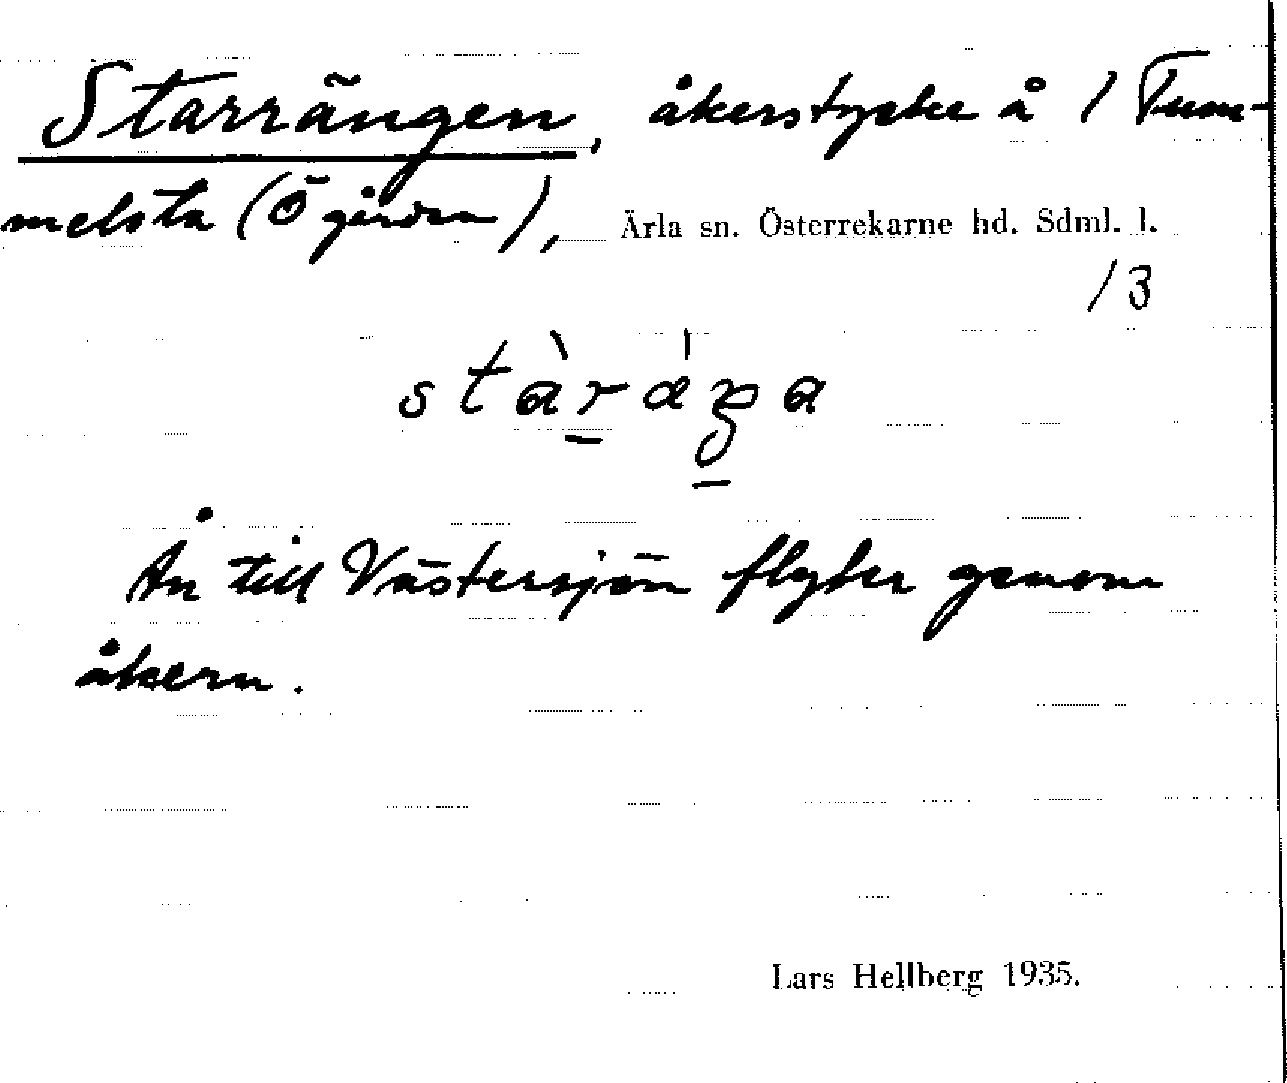 Starrängen, åkerstycke å 1 Tum-
melsta (Ö gården), Ärla sn. Österrekarne hd. Sdml. l.
/3
Ån till Västersjön flyter genom
åkern.
Lars Hellberg 1935.